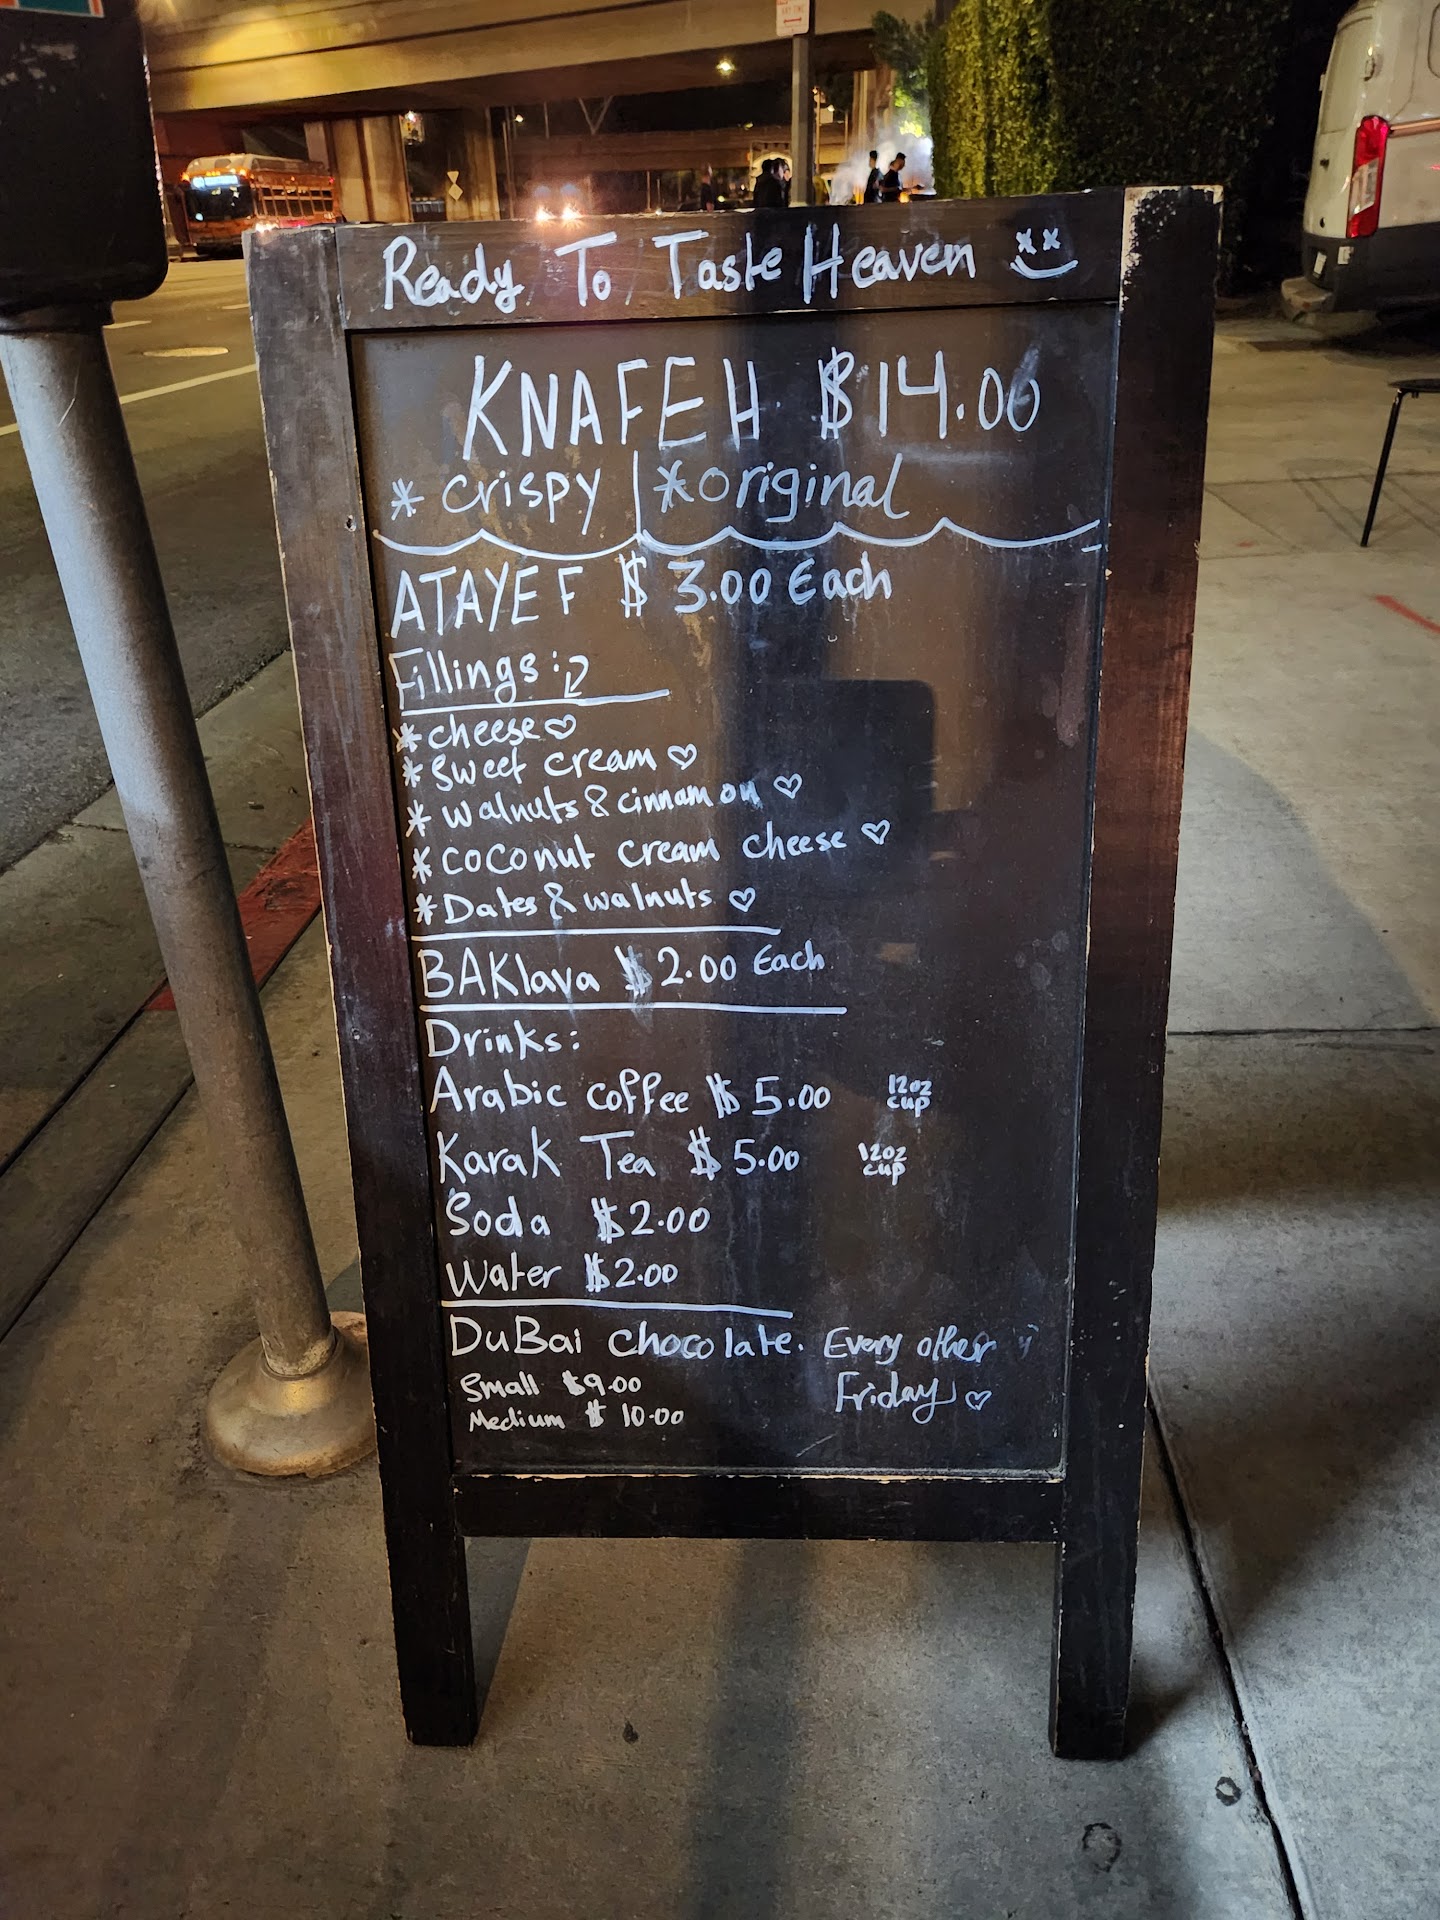 Ready To Taste Heaven
KNAFEH $14.00
* crispy | * original
ATAYEF $ 3.00 Each
Fillings:
* cheese ♡
* sweet cream ♡
* walnuts & cinnamon ♡
* coconut cream cheese ♡
* Dates & walnuts ♡
BAKlava $2.00 Each
Drinks:
Arabic coffee $5.00 12oz cup
Karak Tea $5.00 12oz cup
Soda $2.00
Water $2.00
DuBai chocolate. Every other
Small $9.00 Friday ♡
Medium $10.00